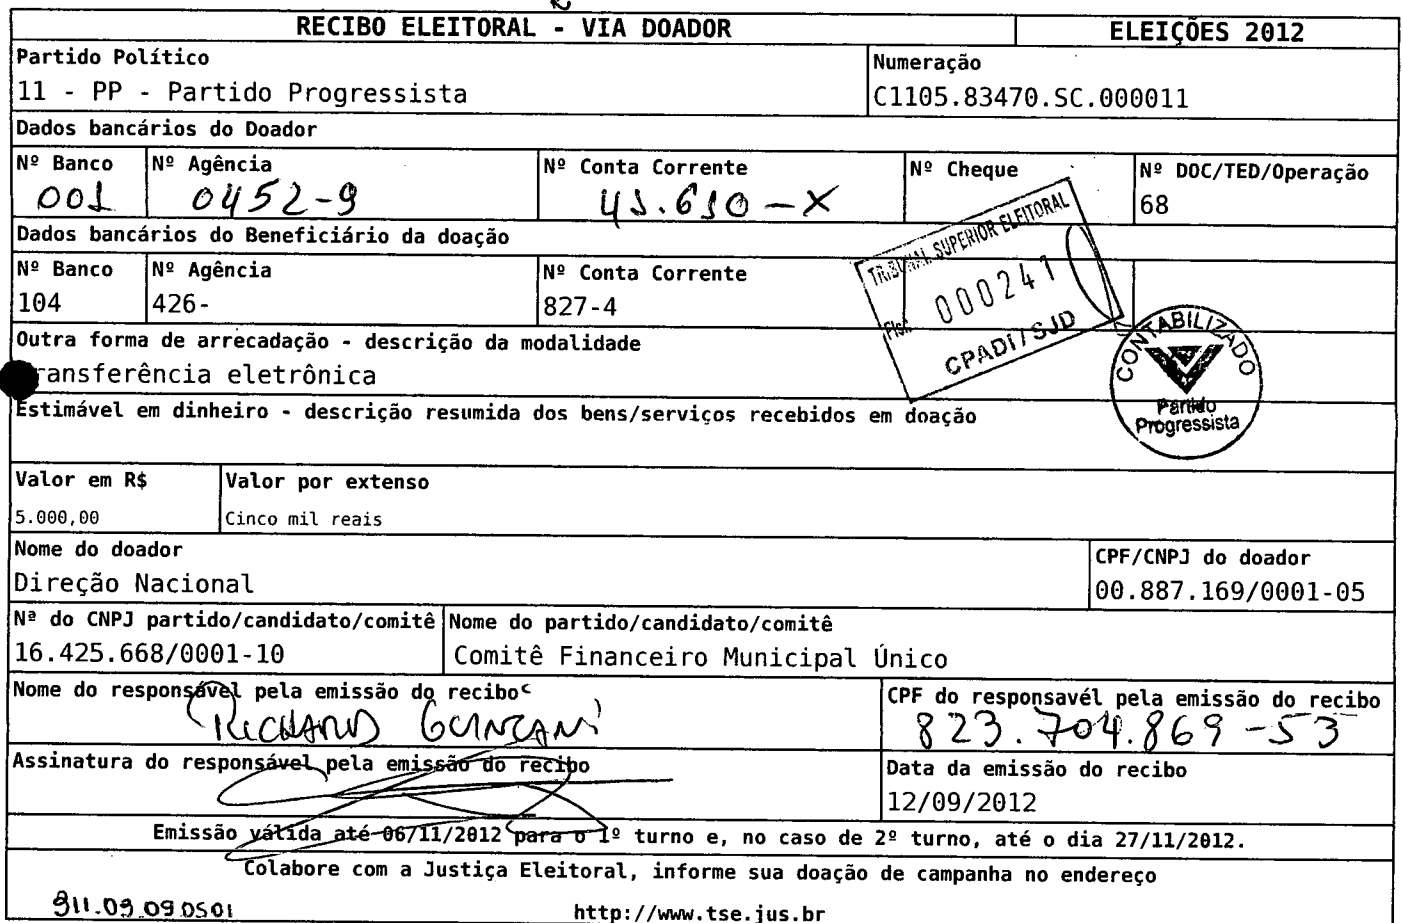 RECIBO ELEITORAL - VIA DOADOR
ELEIÇÕES 2012
Partido Político
11 - PP - Partido Progressista
Numeração
C1105.83470.SC.000011
Dados bancários do Doador
Nº Banco
001
Nº Agência
0452-9
Nº Conta Corrente
41.610-X
Nº Cheque
Nº DOC/TED/Operação
68
Dados bancários do Beneficiário da doação
Nº Banco
104
Nº Agência
426-
Nº Conta Corrente
827-4
TRIBUNAL SUPERIOR ELEITORAL
Fls. 000241
CPADI/SJD
Outra forma de arrecadação - descrição da modalidade
ransferência eletrônica
CONTABILIZADO
Partido
Progressista
Estimável em dinheiro - descrição resumida dos bens/serviços recebidos em doação
Valor em R$
5.000,00
Valor por extenso
Cinco mil reais
Nome do doador
Direção Nacional
CPF/CNPJ do doador
00.887.169/0001-05
Nª do CNPJ partido/candidato/comitê
16.425.668/0001-10
Nome do partido/candidato/comitê
Comitê Financeiro Municipal Único
Nome do responsável pela emissão do recibo
RICHARD
CPF do responsavél pela emissão do recibo
823.704.869-53
Assinatura do responsável pela emissão do recibo
Data da emissão do recibo
12/09/2012
Emissão válida até 06/11/2012 para o 1º turno e, no caso de 2º turno, até o dia 27/11/2012.
Colabore com a Justiça Eleitoral, informe sua doação de campanha no endereço
911.09.09.0501
http://www.tse.jus.br